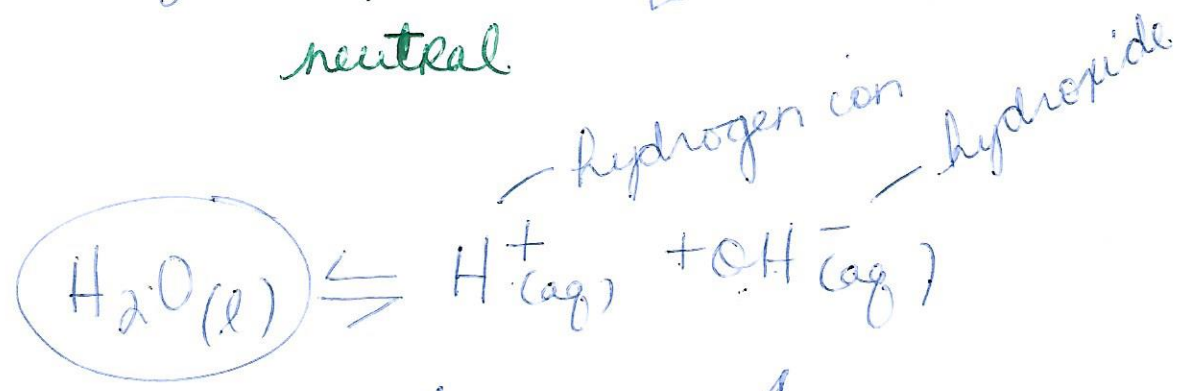 neutral
hydrogen ion
hydroxide
H₂O(l) ⇌ H⁺(aq) + OH⁻(aq)